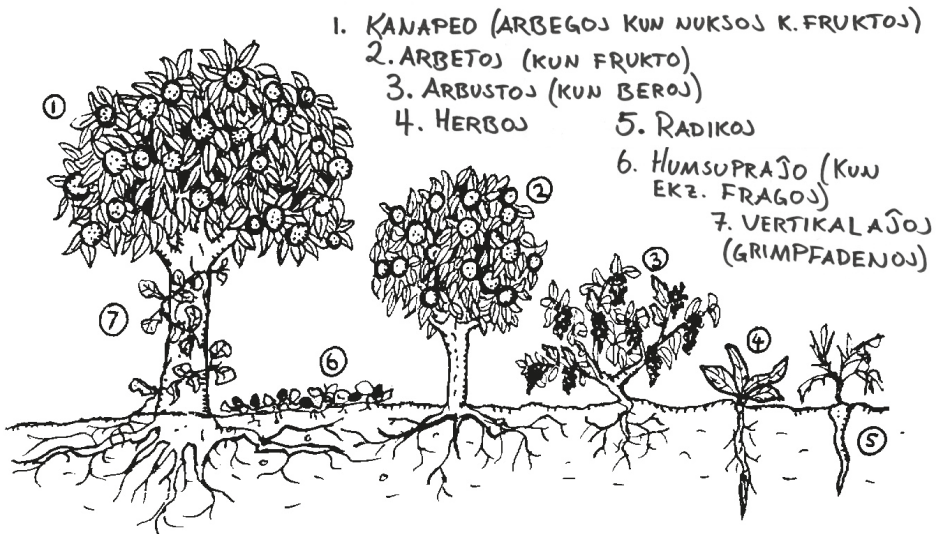 1. KANAPEO (ARBEGOJ KUN NUKSOJ K. FRUKTOJ)
2. ARBETOJ (KUN FRUKTO)
3. ARBUSTOJ (KUN BEROJ)
4. HERBOJ
5. RADIKOJ
6. HUMSUPRAĴO (KUN
EKZ. FRAGOJ)
7. VERTIKALAĴOJ
(GRIMPFADENOJ)
1
2
3
7
6
4
5